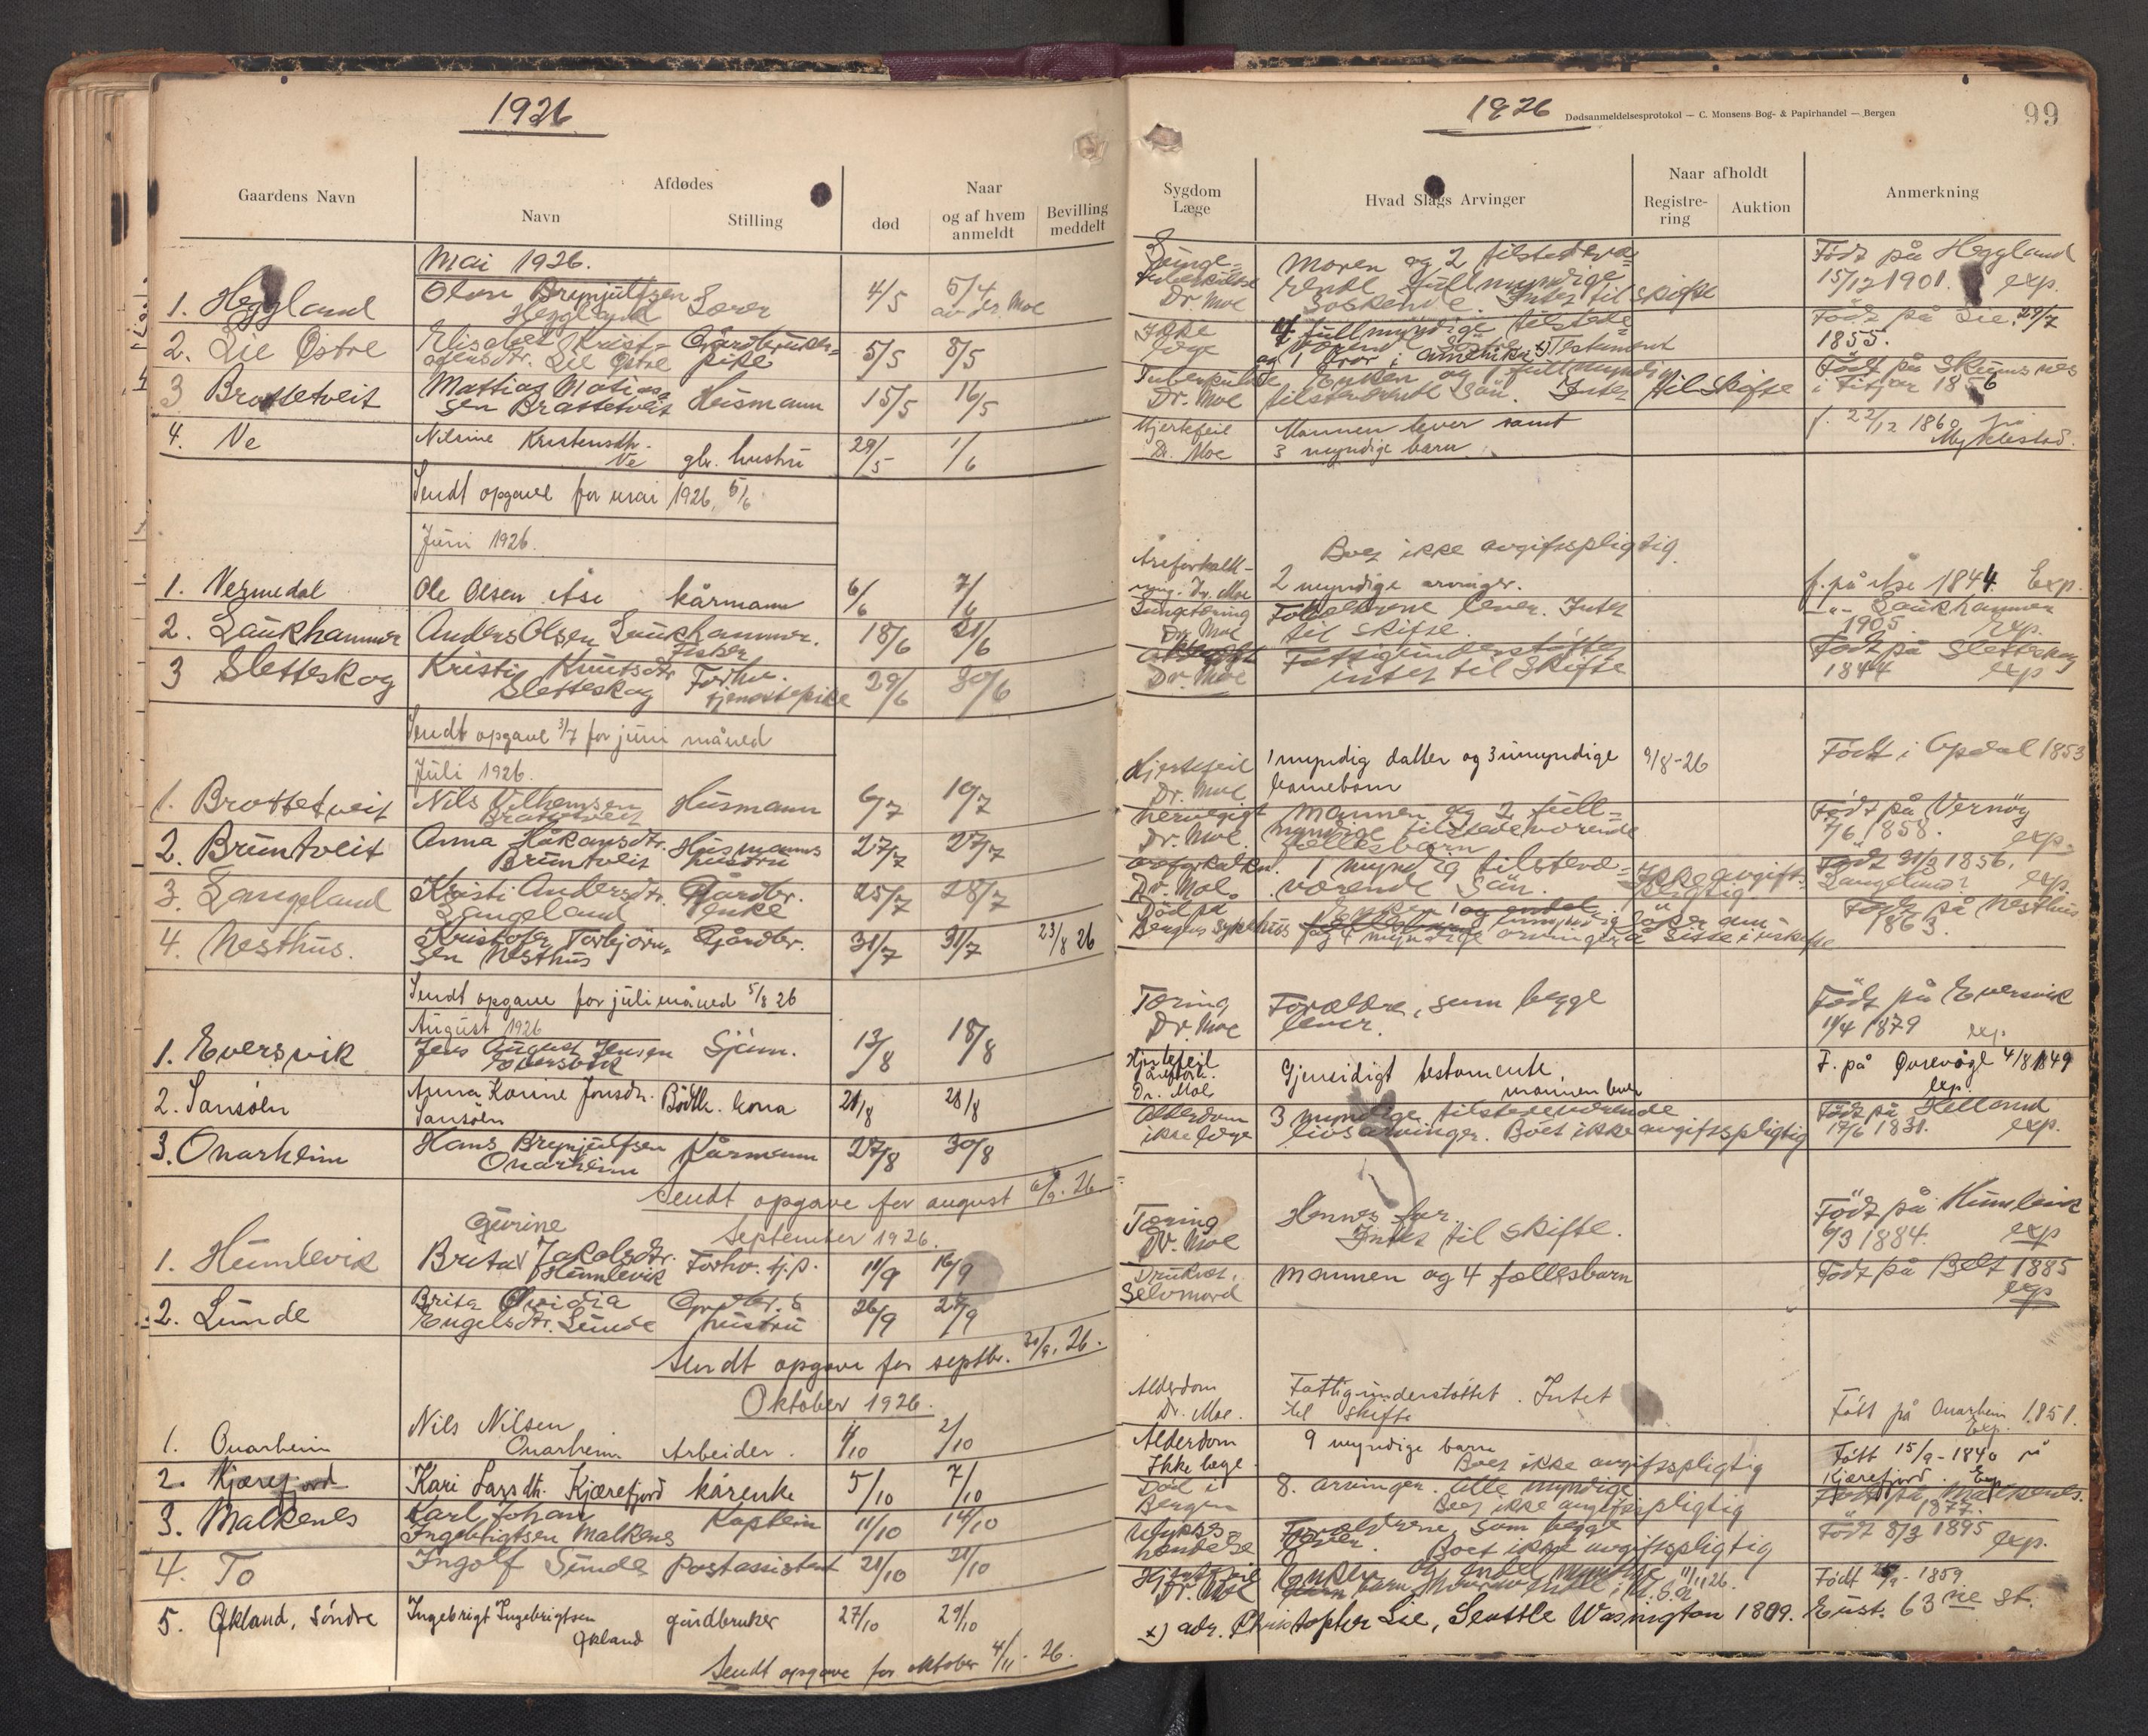 1926
Gaardens Navn
Afdødes
Navn
Stilling
død
Naar
og af hvem
anmeldt
Bevilling
meddelt
Mai 1926.
1. Heggland
Olav Brynjulfsen
Heggland
Lærer
4/5
5/4
av dr. Moe
2. Lie Østre
Elisabet Krist-
ofensdtr. Lie Østre
Gårdbruker-
pike
5/5
8/5
3 Brattetveit
Mattias Matias-
sen Brattetveit
Husmann
15/5
16/5
4. Ve
Nilsine Kristensdtr.
Ve
gbr. hustru
29/5
1/6
Sendt opgave for mai 1926, 5/6
Juni 1926.
1. Vermedal
Ole Olsen Åse
kårmann
6/6
7/6
2. Laukhammer
Anders Olsen Laukhammer.
Fisker
18/6
21/6
3 Sletteskog
Kristi Knutsdtr
Sletteskog
Forhv.
tjenestepike
29/6
30/6
Sendt opgave 3/7 for juni måned
Juli 1926.
1. Brattetveit
Nils Vilhemsen
Brattetveit
Husmann
6/7
10/7
2. Bruntveit
Anna Håkonsdtr.
Bruntveit
Husmanns
hustru
27/7
27/7
3. Langeland
Kristi Andersdtr.
Langeland
Gårdbr.
enke
25/7
28/7
4. Nesthus.
Kristofer Torbjörn-
sen Nesthus
Gårdbr.
31/7
31/7
23/8 26
Sendt opgave for juli måned 5/8 26
August 1926
1. Eversvik
Jens August Jensen
Eversvik
Sjøm.
13/8
18/8
2. Sansöen
Anna Karine Jonsdtr.
Sansöen
Bödk. kona
21/8
28/8
3. Onarheim
Hans Brynjulfsen
Onarheim
Kårmann
27/8
30/8
Sendt opgave for august 6/9. 26
September 1926.
1. Humlevik
Gurine
Brita Jakobsdtr.
Humlevik
Forhv. tj.p.
11/9
16/9
2. Lunde
Brita Ovidia
Engelsdtr. Lunde
Gårdbr.s
hustru
26/9
27/9
Sendt opgave for septbr. 30/9. 26.
Oktober 1926.
1. Onarheim
Nils Nilsen
Onarheim
Arbeider.
1/10
2/10
2. Kjærefjord
Kari Larsdtr. Kjærefjord
kårenke
5/10
7/10
3. Malkenes
Karl Johan
Ingebrigtsen Malkenes
Kaptein
11/10
14/10
4. To
Ingolf Sunde
Postassistent
21/10
21/10
5. Økland, Söndre
Ingebrigt Ingebrigtsen
Økland
gårdbruker
27/10
29/10
Sendt opgave for oktober 4/11. 26.
1926
Dødsanmeldelsesprotokol — C. Monsens Bog- & Papirhandel — Bergen
99
Sygdom
Læge
Hvad Slags Arvinger
Naar afholdt
Registre-
ring
Auktion
Anmerkning
Lunge-
tuberkulose
Dr. Moe
Moren og 2 tilstedevæ-
rende fullmyndige
Søskende. Intet til skifte
Født på Heggland
15/12 1901. exp.
Ikke
læge
4 fullmyndige tilstede-
værende søstre
og 1 bror i Amerika x) Testament
Født på Lie. 29/7
1855.
Tuberkulose
Dr. Moe
Enken og 1 fullmyndig
tilstedeværende sön. Intet til skifte
Født på Skumsnes
i Fitjar 1856
Hjertefeil
Dr. Moe
Mannen lever samt
3 myndige barn
f. 22/12 1860 på
Myklestad.
Boet ikke avgiftspligtig.
Åreforkalk-
ning. Dr. Moe
2 myndige arvinger.
f. på Åse 1844. Exp.
Lungetæring
Dr. Moe
Foreldrene lever. Intet
til skifte.
-"- Laukhammer
1905 Exp.
Dr. Moe
Fattigunderstøttet
intet til skifte
Født på Sletteskog
1844 exp
Hjertefeil
Dr. Moe
1 myndig datter og 3 umyndige
barnebarn
9/8-26
Født i Opdal 1853
Nervegigt
Dr. Moe.
Mannen og 2 full-
myndige tilstedeværende
fællesbarn
Født på Vernöy
7/6 1858. exp.
Åreforkalkn.
Dr. Moe.
1 myndig tilstede-
værende Sön.
Ikke avgift-
pligtig
Født 31/3 1856.
Langeland? exp.
Död på
Bergens Sykehus
og 4 myndige arvinger
å sitte i uskifte
Født på Nesthus
1863.
Tæring
Dr. Moe
Forældre, som begge
lever.
Født på Eversvik
11/4 1879 exp.
Hjertefeil
Dr. Moe
Gjensidigt testamente.
mannen lever
F. på Qvrevåge 4/8 1849
exp.
Alderdom
ikke læge
3 myndige tilstedeværende
livsarvinger. Boet ikke avgiftspligtig
Født på Helland
17/6 1831. exp.
Tæring
Dr. Moe
Hennes far.
Intet til skifte.
Født på Humlevik
6/3 1884. exp
Druknet,
Selvmord
Mannen og 4 fællesbarn
Født på Belt 1885
exp
Alderdom
Dr. Moe.
Fattigunderstøttet. Intet
til skifte
Født på Onarheim 1851.
Exp.
Alderdom
Ikke læge
9 myndige barn
Boet ikke avgiftspligtig
Født 15/9-1840 på
Kjærefjord. Exp
Død i
Bergen
8. arvinger. Alle myndige
Boet ikke avgiftspligtig
Født på Malkenes.
1877.
Ulykkes
hendelse
Forældrene, som begge
lever. Boet ikke avgiftspligtig
Født 8/3 1895 exp.
Hjertefeil
Dr. Moe
Enken og endel myndige 11/11 26.
barn, hvorav endel i U.S.A.
Født 25/9-1859
x) adr. Christopher Lie, Seattle Wasington 1809. East. 63 ne St.